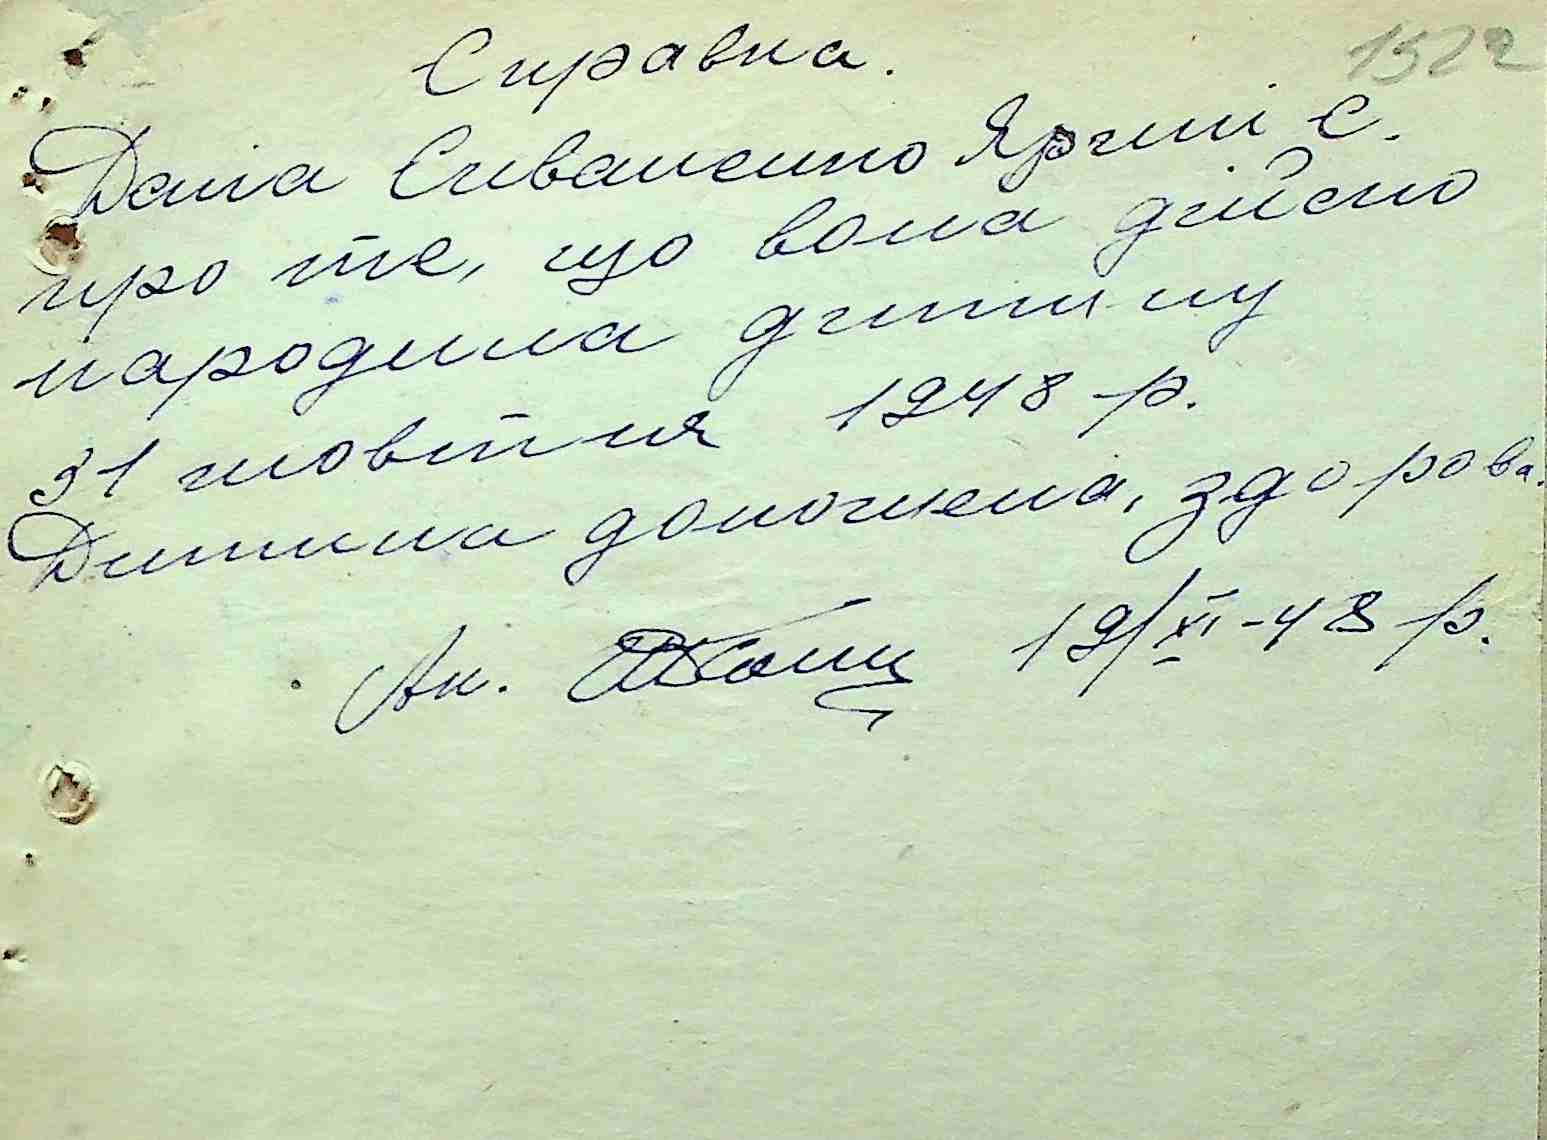 1522
Справка.
Дана Сиваченко Ярині С.
про те, що вона дійсно
народила дитину
31 жовтня 1948 р.
Дитина доношена, здорова.
Ак. 19/XI-48 р.